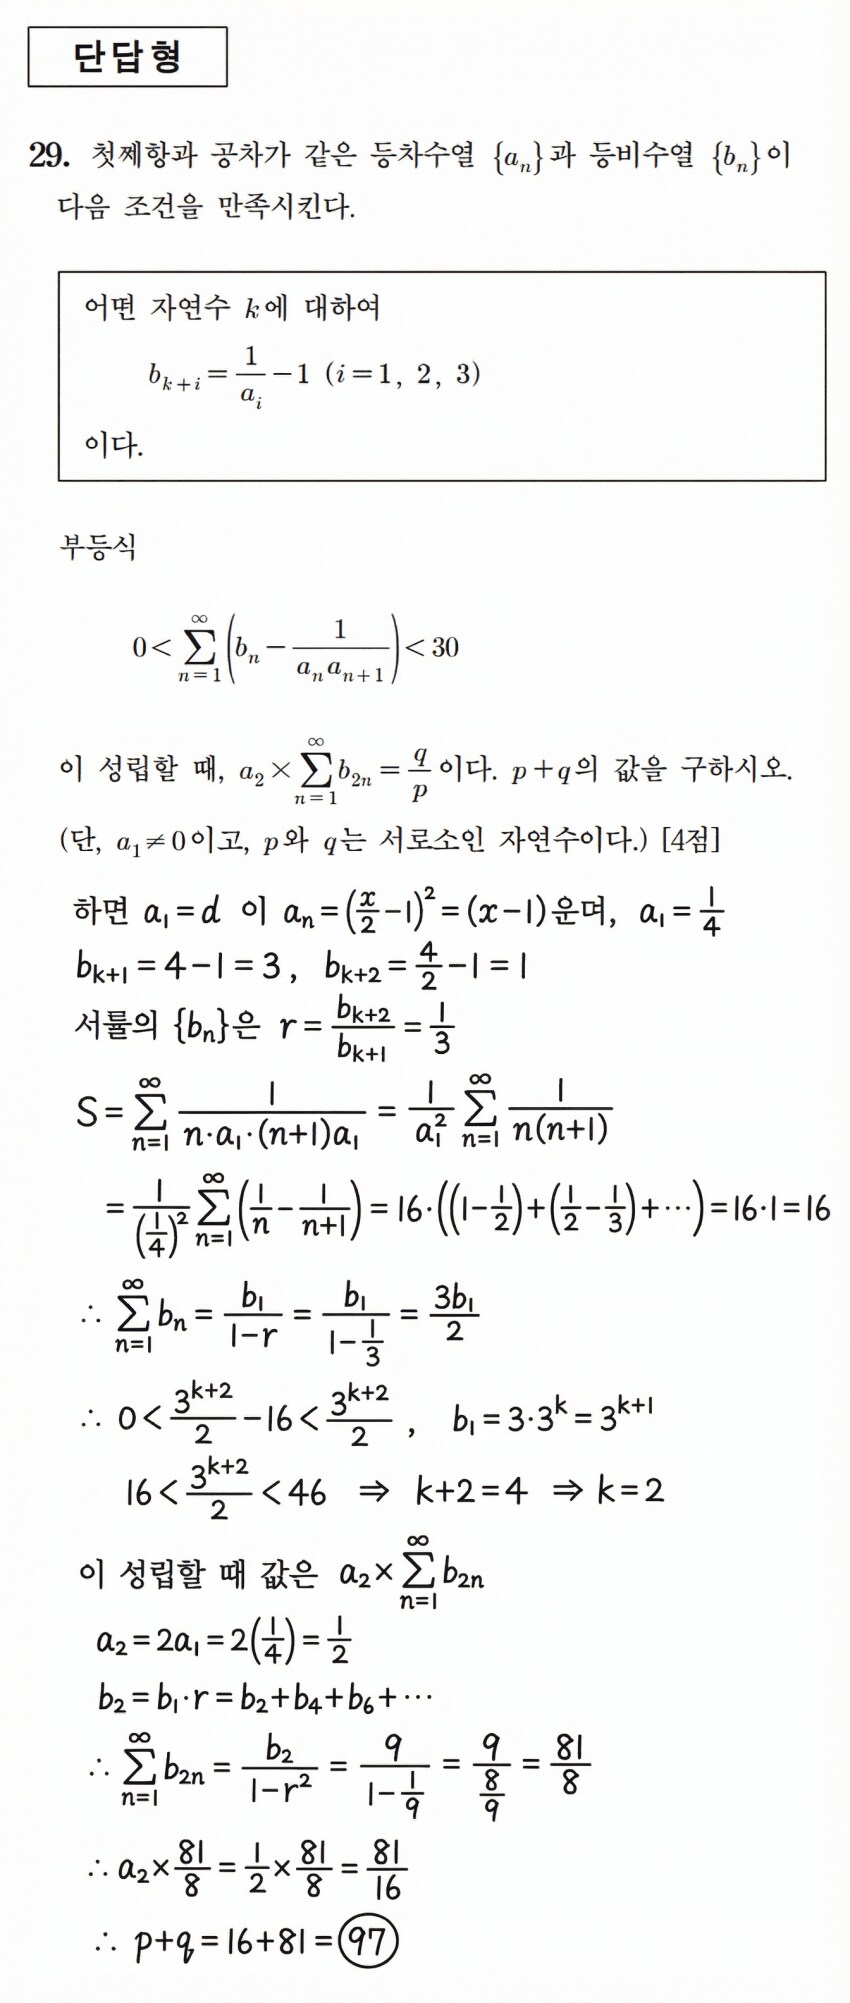 단답형
29. 첫째항과 공차가 같은 등차수열 {a_n}과 등비수열 {b_n}이
다음 조건을 만족시킨다.
어떤 자연수 k에 대하여
b_{k+i} = \frac{1}{a_i} - 1 (i=1, 2, 3)
이다.
부등식
0 < \sum_{n=1}^{∞} ( b_n - \frac{1}{a_n a_{n+1}} ) < 30
이 성립할 때, a_2 × \sum_{n=1}^{∞} b_{2n} = \frac{q}{p} 이다. p+q의 값을 구하시오.
(단, a_1 ≠ 0이고, p와 q는 서로소인 자연수이다.) [4점]
하면 a_1 = d 이 a_n = (\frac{x}{2} - 1)^2 = (x-1)운며, a_1 = \frac{1}{4}
b_{k+1} = 4-1 = 3, b_{k+2} = \frac{4}{2} - 1 = 1
서률의 {b_n}은 r = \frac{b_{k+2}}{b_{k+1}} = \frac{1}{3}
S = \sum_{n=1}^{∞} \frac{1}{n·a_1·(n+1)a_1} = \frac{1}{a_1^2} \sum_{n=1}^{∞} \frac{1}{n(n+1)}
= \frac{1}{(\frac{1}{4})^2} \sum_{n=1}^{∞} (\frac{1}{n} - \frac{1}{n+1}) = 16·((1-\frac{1}{2})+(\frac{1}{2}-\frac{1}{3})+⋯) = 16·1 = 16
∴ \sum_{n=1}^{∞} b_n = \frac{b_1}{1-r} = \frac{b_1}{1-\frac{1}{3}} = \frac{3b_1}{2}
∴ 0 < \frac{3^{k+2}}{2} - 16 < \frac{3^{k+2}}{2} , b_1 = 3·3^k = 3^{k+1}
16 < \frac{3^{k+2}}{2} < 46 ⇒ k+2 = 4 ⇒ k = 2
이 성립할 때 값은 a_2 × \sum_{n=1}^{∞} b_{2n}
a_2 = 2a_1 = 2(\frac{1}{4}) = \frac{1}{2}
b_2 = b_1·r = b_2+b_4+b_6+⋯
∴ \sum_{n=1}^{∞} b_{2n} = \frac{b_2}{1-r^2} = \frac{9}{1-\frac{1}{9}} = \frac{9}{\frac{8}{9}} = \frac{81}{8}
∴ a_2 × \frac{81}{8} = \frac{1}{2} × \frac{81}{8} = \frac{81}{16}
∴ p+q = 16+81 = 97